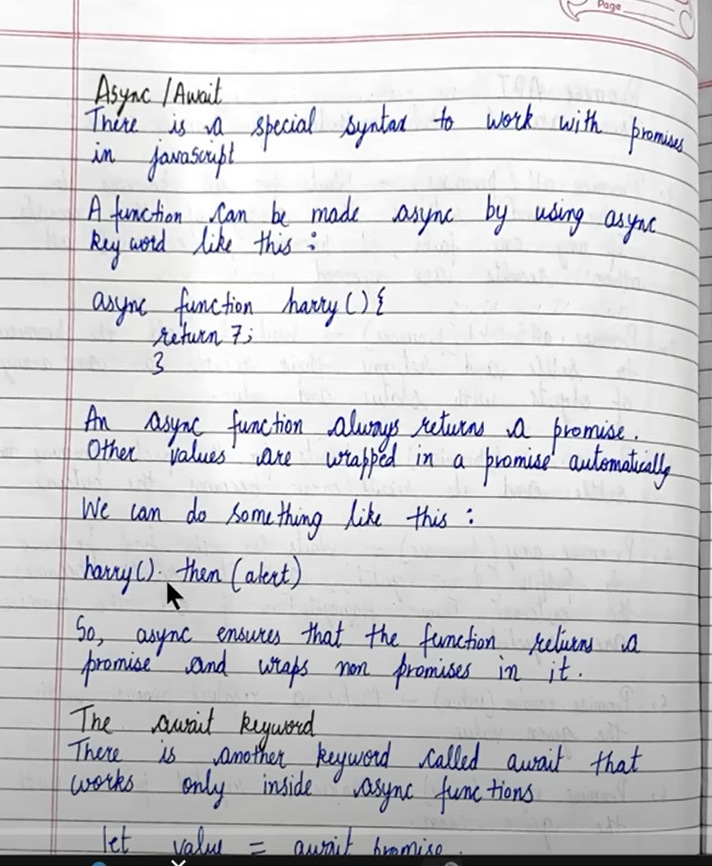 Page
Async / Await
There is a special syntax to work with promises
in javascript
A function can be made async by using async
key word like this :
async function harry () {
return 7;
}
An async function always returns a promise.
Other values are wrapped in a promise automatically
We can do something like this :
harry(). then (alert)
So, async ensures that the function returns a
promise and wraps non promises in it.
The await keyword
There is another keyword called await that
works only inside async functions
let value = await promise